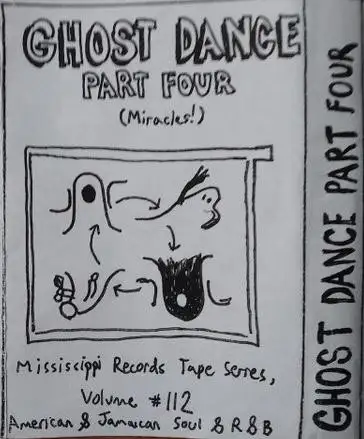 GHOST DANCE
PART FOUR
(Miracles!)
Mississippi Records Tape Series,
Volume #112
American & Jamaican Soul & R&B
GHOST DANCE PART FOUR